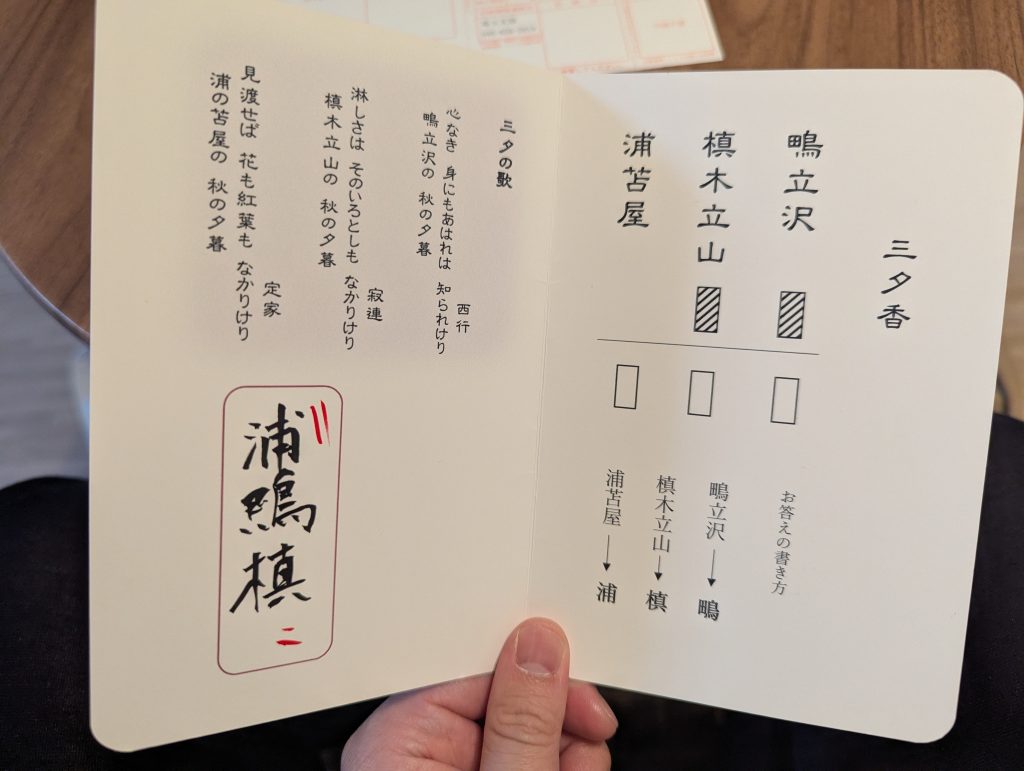 三夕香
鴫立沢
槙木立山
浦苫屋
お答えの書き方
鴫立沢→鴫
槙木立山→槙
浦苫屋→浦
三夕の歌
西行
心なき 身にもあはれは 知られけり
鴫立沢の 秋の夕暮
寂連
淋しさは そのいろとしも なかりけり
槙木立山の 秋の夕暮
定家
見渡せば 花も紅葉も なかりけり
浦の苫屋の 秋の夕暮
浦鴫槙
二